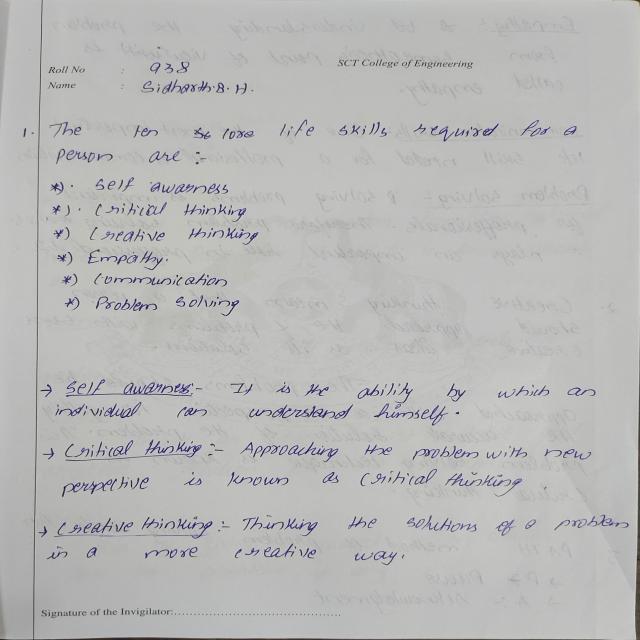 SCT College of Engineering
Roll No : 938
Name : Sidharth.B.H.
1. The ten core life skills required for a
person are :-
*). Self awarness
*). Critical thinking
*) Creative thinking
*) Empathy.
*) Communication
*) Problem Solving
→ Self awarness:- It is the ability by which an
individual can understand himself.
→ Critical thinking:- Approaching the problem with new
perspective is known as Critical thinking
→ Creative thinking:- Thinking the solutions of a problem
in a more creative way.
Signature of the Invigilator: